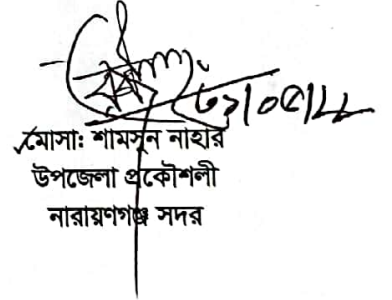 মোসা: শামসুন নাহার
উপজেলা প্রকৌশলী
নারায়ণগঞ্জ সদর